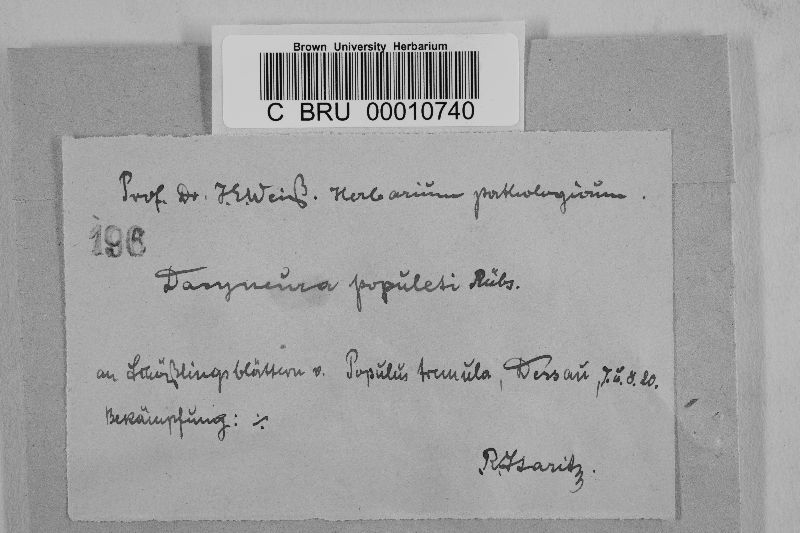 Brown University Herbarium
C BRU 00010740
Prof. Dr. J.E.Weiß. Herbarium pathologicum.
196
Dasyneura populeti Rübs.
an Schößlingsblättern v. Populus tremula, Dessau, 7. u. 8. 20.
Bekämpfung: ·/·
R. Staritz.